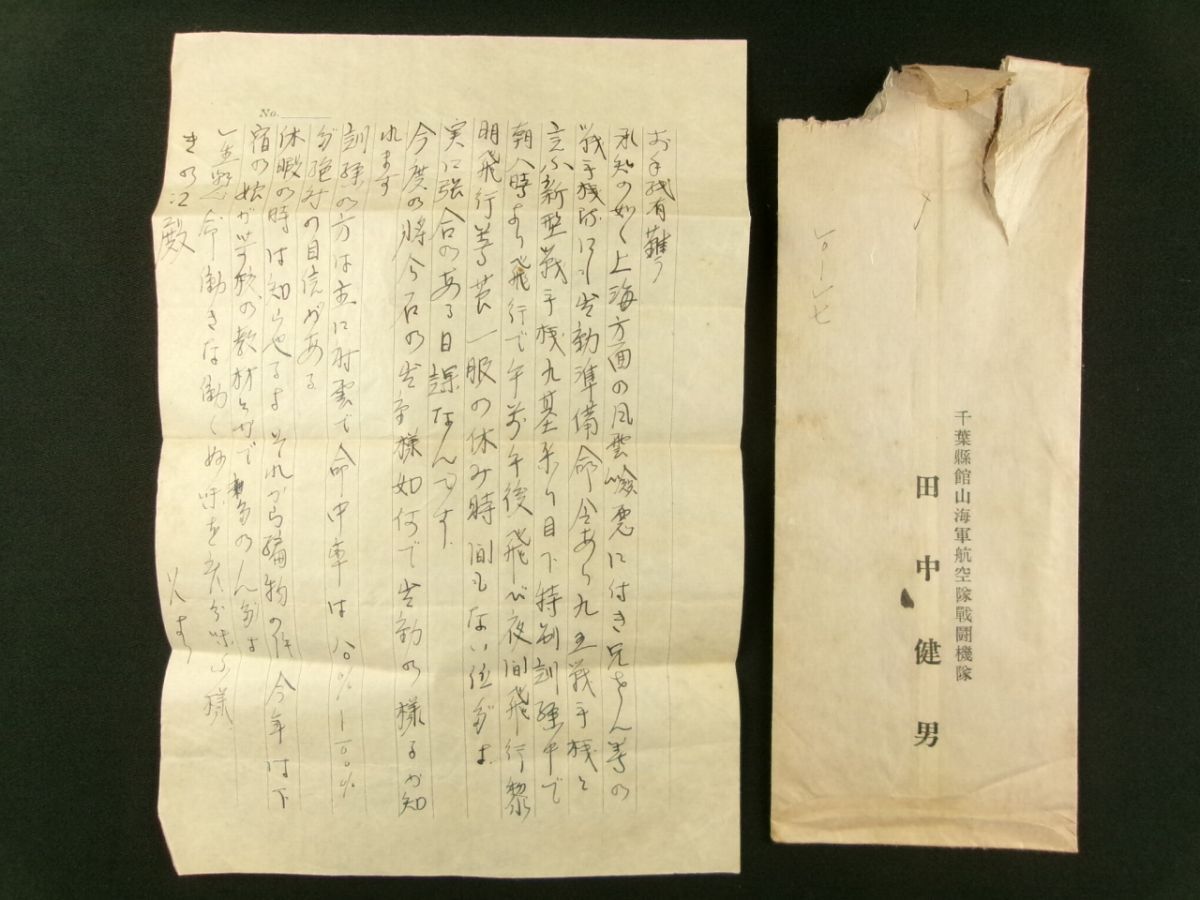 No.
お手紙有難う
承知の如く上海方面の風雲険悪に付き兄さん等の
戦斗機隊にも出動準備命令あり九五戦斗機と
言ふ新型戦斗機九基来り目下特別訓練中で
朝八時より飛行で午前午後飛び夜間飛行黎
明飛行等煙草一服の休み時間もない位だよ
実に張合のある日課なんです
今度の将介石の出方様如何で出動の様るか知
れます
訓練の方は主に射撃で命中率は八〇%―一〇〇%
だ絶対の自信がある
休暇の時は知らせるよ それから編物の件 今年は下
宿の娘が学校の教材とかで
一生懸命働きな働く
きの江殿
兄より
一〇―一七
千葉縣館山海軍航空隊戰鬪機隊
田中健男